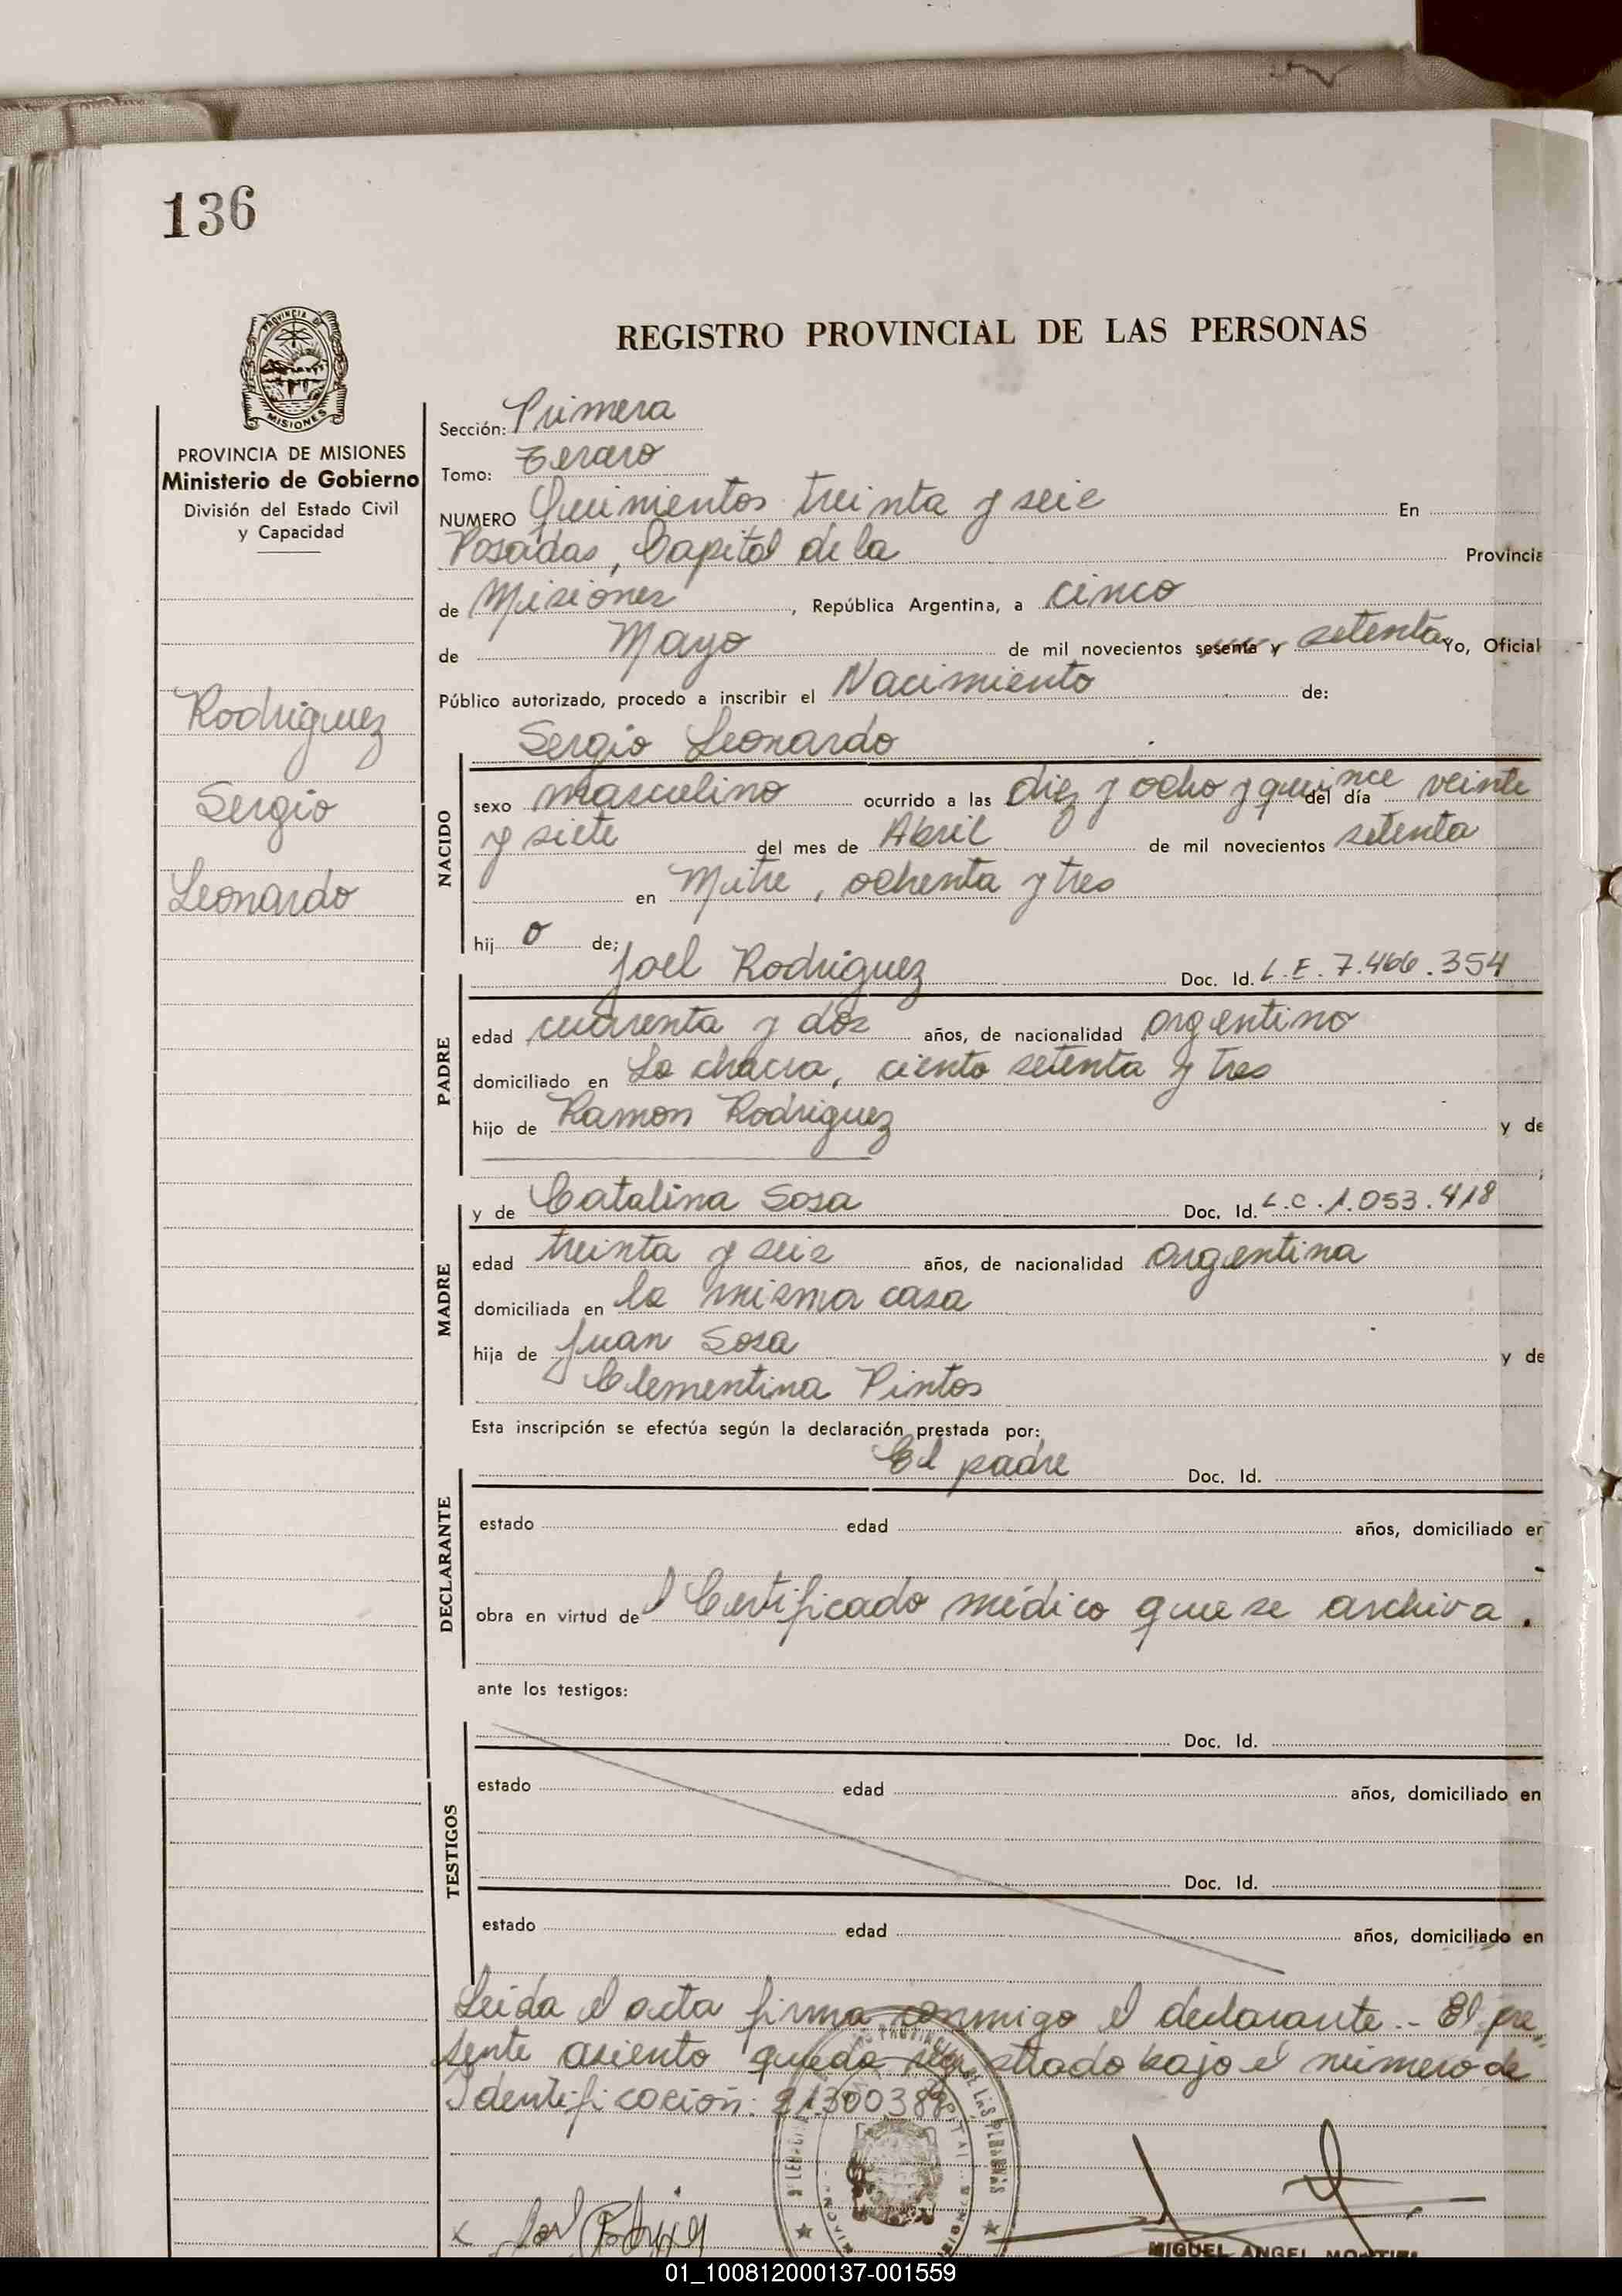 136
REGISTRO PROVINCIAL DE LAS PERSONAS
PROVINCIA DE MISIONES
MISIONES
PROVINCIA DE MISIONES
Ministerio de Gobierno
División del Estado Civil
y Capacidad
Rodriguez
Sergio
Leonardo
Sección: Primera
Tomo: Tercero
NUMERO Quinientos treinta y seis En
Posadas, Capital de la Provincia
de Misiones, República Argentina, a cinco
de Mayo de mil novecientos sesenta y setenta Yo, Oficial
Público autorizado, procedo a inscribir el Nacimiento de:
Sergio Leonardo
NACIDO
sexo masculino ocurrido a las diez y ocho y quince del día veinte
y siete del mes de Abril de mil novecientos setenta
en Mitre, ochenta y tres
hij o de;
Joel Rodriguez Doc. Id. L.E. 7.466.354
PADRE
edad cuarenta y dos años, de nacionalidad argentino
domiciliado en La chacra, ciento setenta y tres
hijo de Ramon Rodriguez y de
y de Catalina Sosa Doc. Id. L.C. 1.053.418
MADRE
edad treinta y seis años, de nacionalidad argentina
domiciliada en la misma casa
hija de Juan Sosa y de
Clementina Pintos
Esta inscripción se efectúa según la declaración prestada por:
El padre Doc. Id.
DECLARANTE
estado edad años, domiciliado en
obra en virtud del Certificado médico que se archiva.
ante los testigos:
Doc. Id.
TESTIGOS
estado edad años, domiciliado en
Doc. Id.
estado edad años, domiciliado en
Leida el acta firma conmigo el declarante.- El pre-
sente asiento queda registrado bajo el número de
Identificación: 21300388
MIGUEL ANGEL
01_100812000137-001559